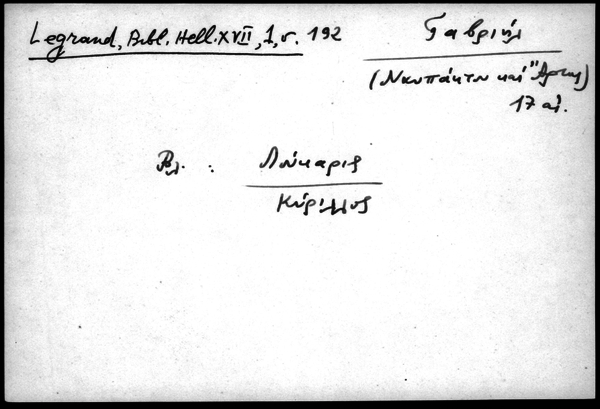 Legrand, Bibl. Hell. XVII, 1, σ. 192
Γαβριήλ
(Ναυπάκτου καί Ἄρτης)
17 αἰ.
Βλ. : Λούκαρις
Κύριλλος